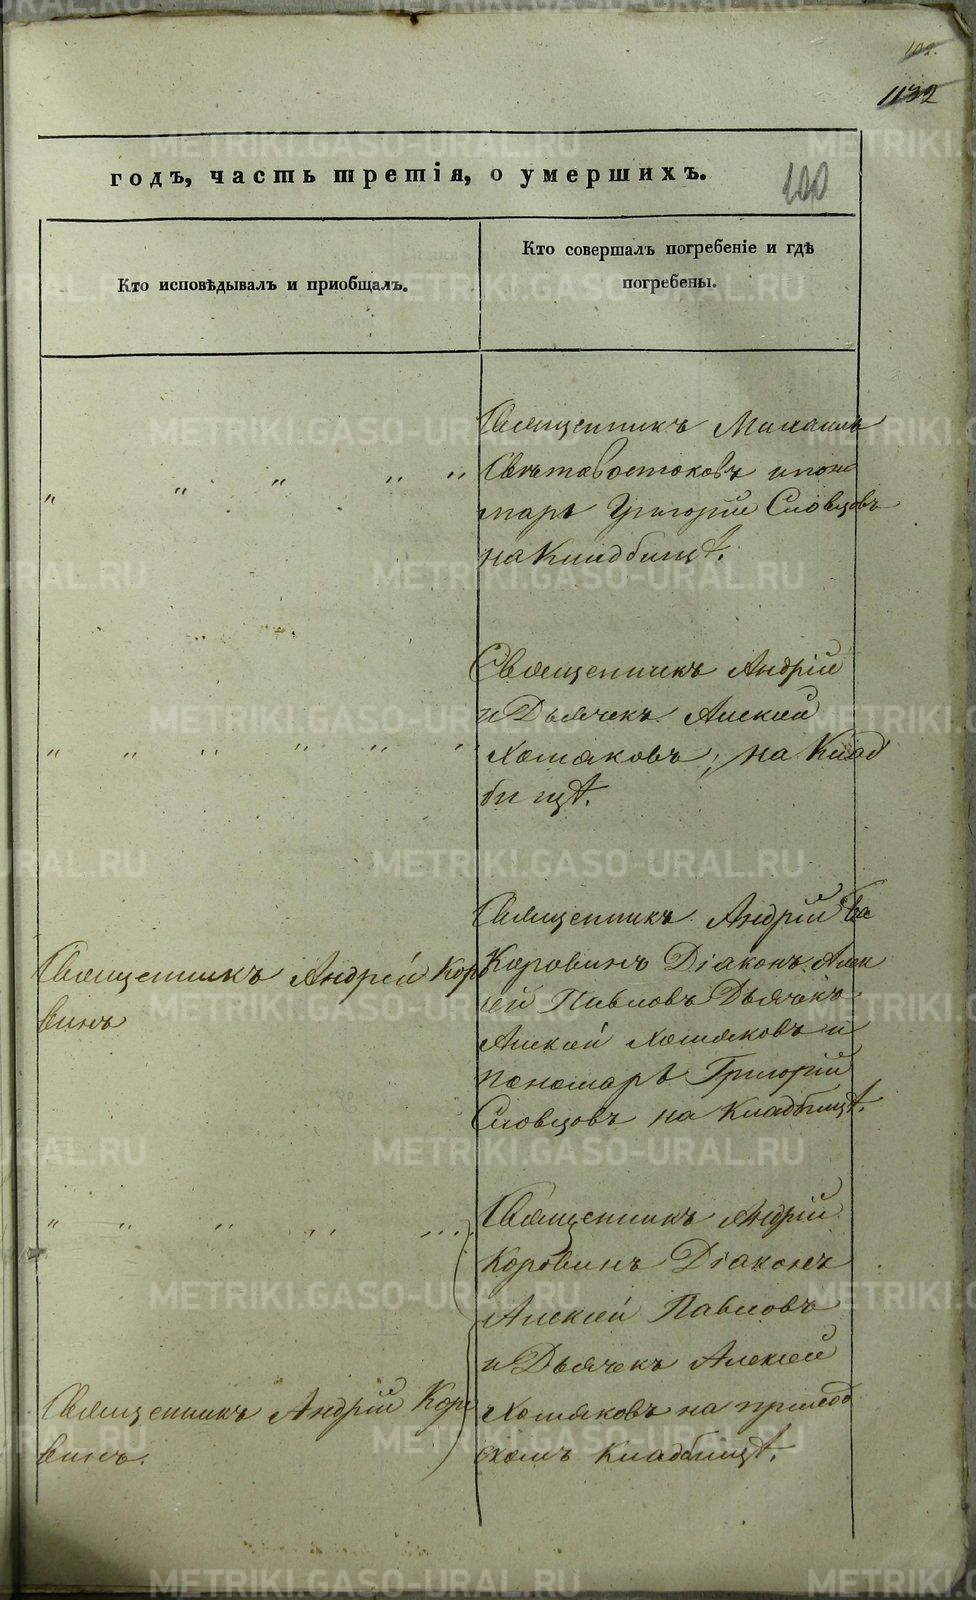 102.
1132
годъ, часть третія, о умершихъ.
100
Кто исповѣдывалъ и приобщалъ.
Кто совершалъ погребеніе и гдѣ
погребены.
Священникъ Михаилъ
Свѣтовостоковъ и поно
марь Григорій Словцовъ
на Кладбищѣ.
Священникъ Андрій
и Дьячекъ Алексій
Хомяковъ; на Клад
бищѣ.
Священникъ Андрей Коро
винъ
Священникъ Андрій
Коровинъ Діаконъ Алек
сій Павловъ Дьячекъ
Алексій Хомяковъ и
пономарь Григорій
Словцовъ на Кладбищѣ.
Священникъ Андрій
Коровинъ Діаконъ
Алексій Павловъ
и Дьячекъ Алексій
Хомяковъ на приход
скомъ Кладбищѣ.
Священникъ Андрій Коро
винъ.
METRIKI.GASO-URAL.RU